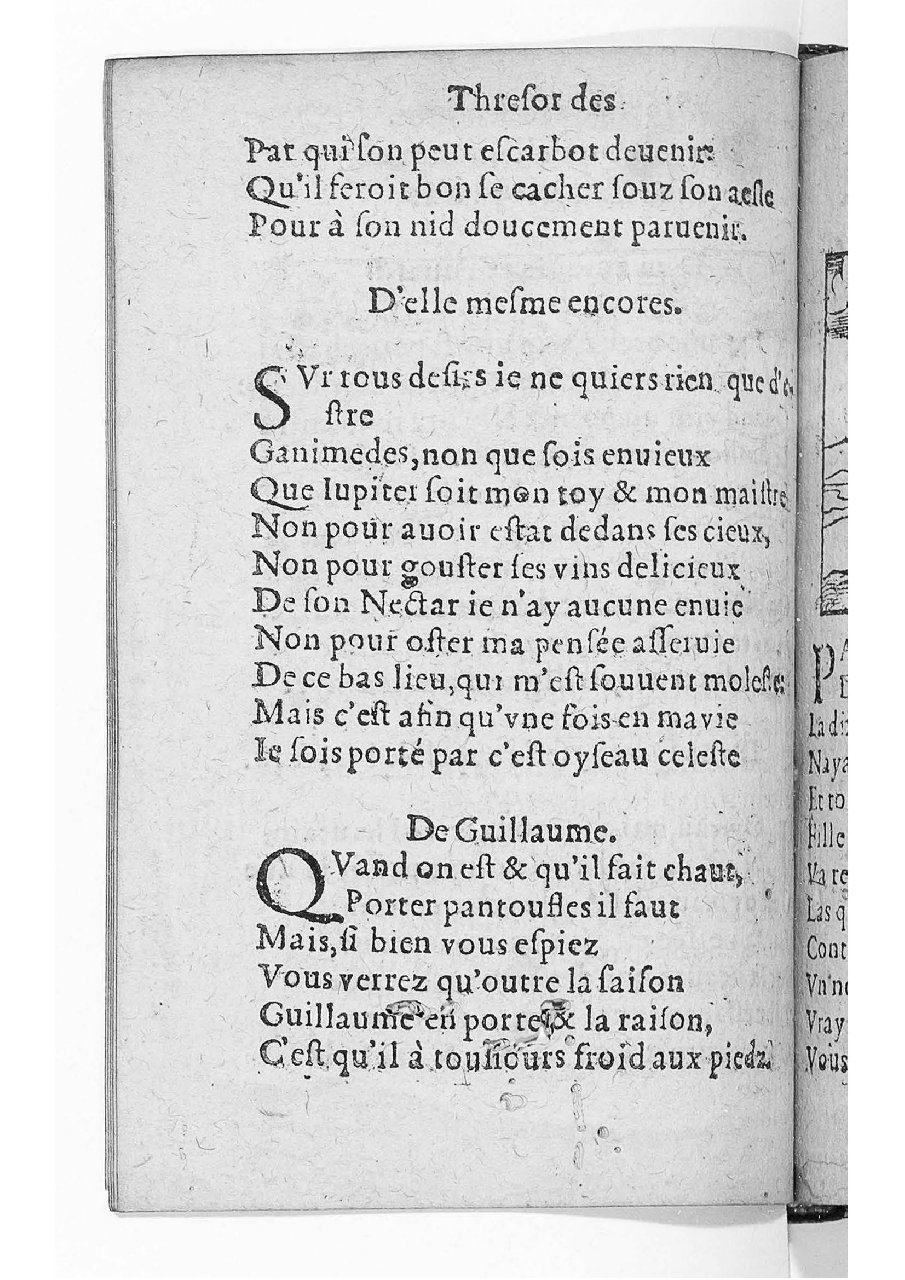 Threſor des
Par qui ſon peut eſcarbot deuenir:
Qu'il feroit bon ſe cacher ſouz ſon aeſle
Pour à ſon nid doucement paruenir.
D'elle meſme encores.
SVr tous deſirs ie ne quiers rien que d'e-
ſtre
Ganimedes, non que ſois enuieux
Que Iupiter ſoit mon roy & mon maiſtre
Non pour auoir eſtat dedans ſes cieux,
Non pour gouſter ſes vins delicieux
De ſon Nectar ie n'ay aucune enuie
Non pour oſter ma penſée aſſeruie
De ce bas lieu, qui m'eſt ſouuent moleſte:
Mais c'eſt afin qu'vne fois en ma vie
Ie ſois porté par c'eſt oyſeau celeſte
De Guillaume.
QVand on eſt & qu'il fait chaut,
Porter pantoufles il faut
Mais, ſi bien vous eſpiez
Vous verrez qu'outre la ſaiſon
Guillaume en porte, & la raiſon,
C'eſt qu'il à touſiours froid aux piedz
La di
Naya
Et to
Fille
Va re
Las q
Cont
Vn'n
Vray
Vous